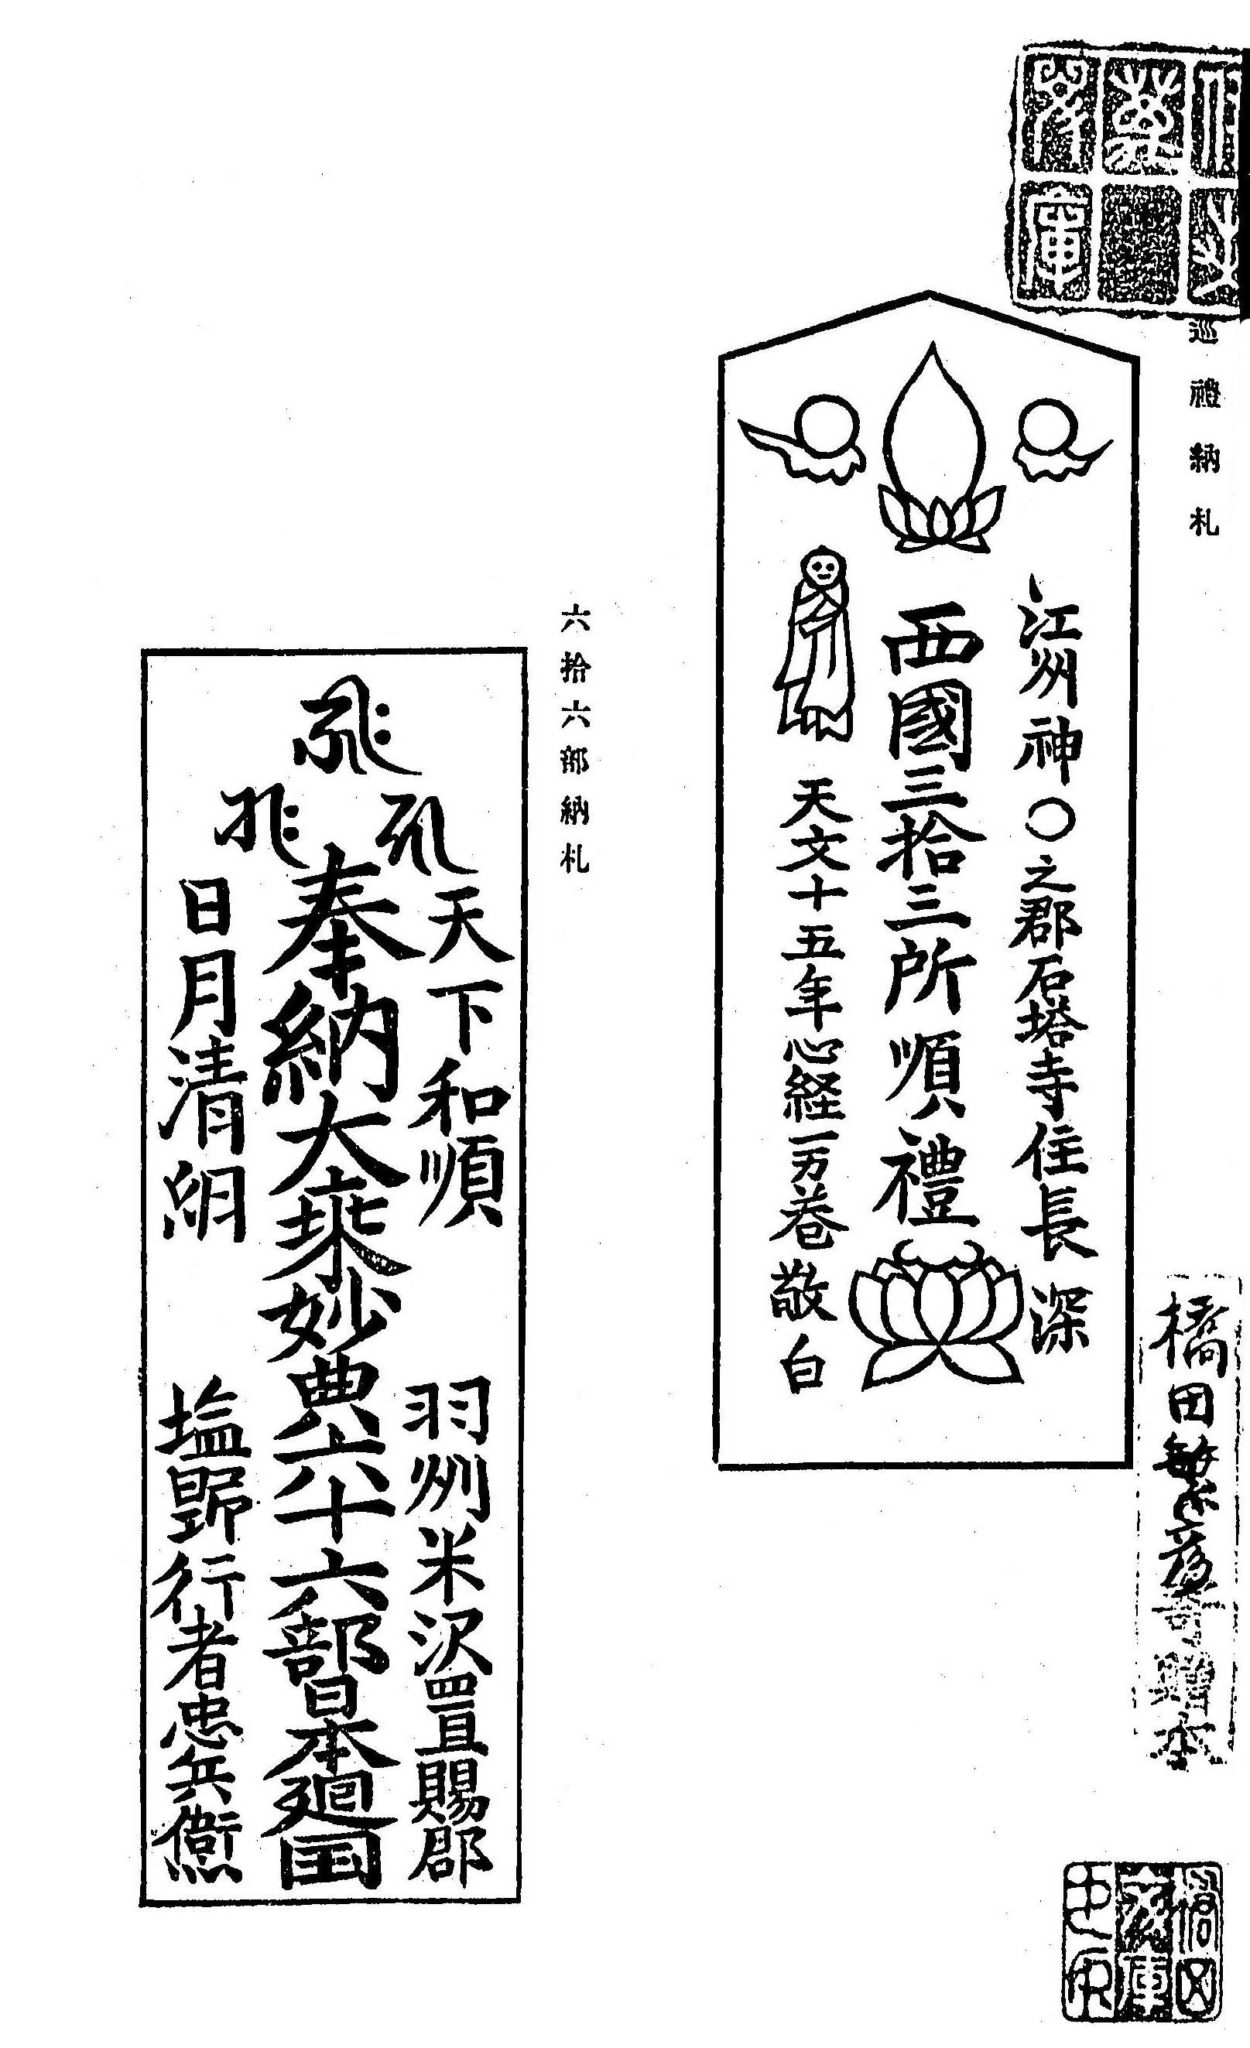 巡禮納札
江州神○之郡石塔寺住長深
西國三拾三所順禮
天文十五年心経一万巻敬白
六拾六部納札
天下和順
羽州米沢置賜郡
奉納大乗妙典六十六部日本廻国
日月清明
塩野行者忠兵衛
橋田
文庫